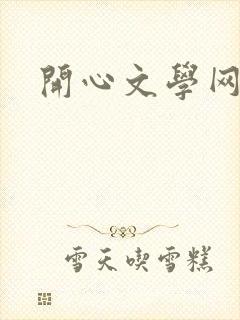 開心文學网
雪天喫雪糕